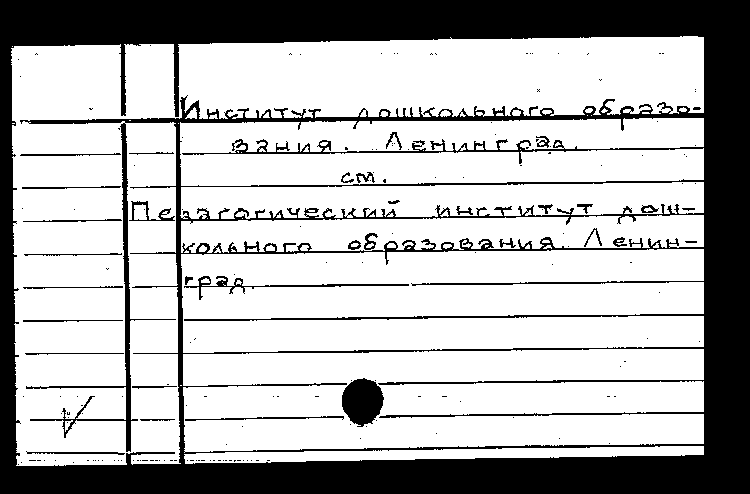 Институт дошкольного образо-
вания. Ленинград.
см.
Педагогический институт дош-
кольного образования. Ленин-
град.